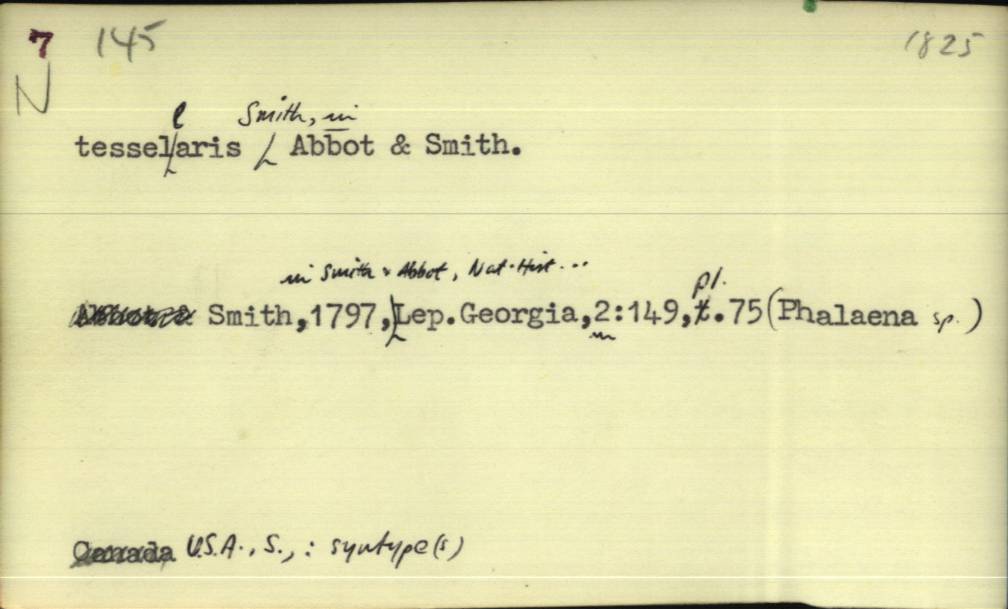 7 145 1825
N
l Smith, in
tesselaris Abbot & Smith.
in Smith & Abbot, Nat. Hist...
pl.
Abbot & Smith,1797,Lep.Georgia,2:149,t.75(Phalaena sp.)
Canada U.S.A., S., : syntype(s)